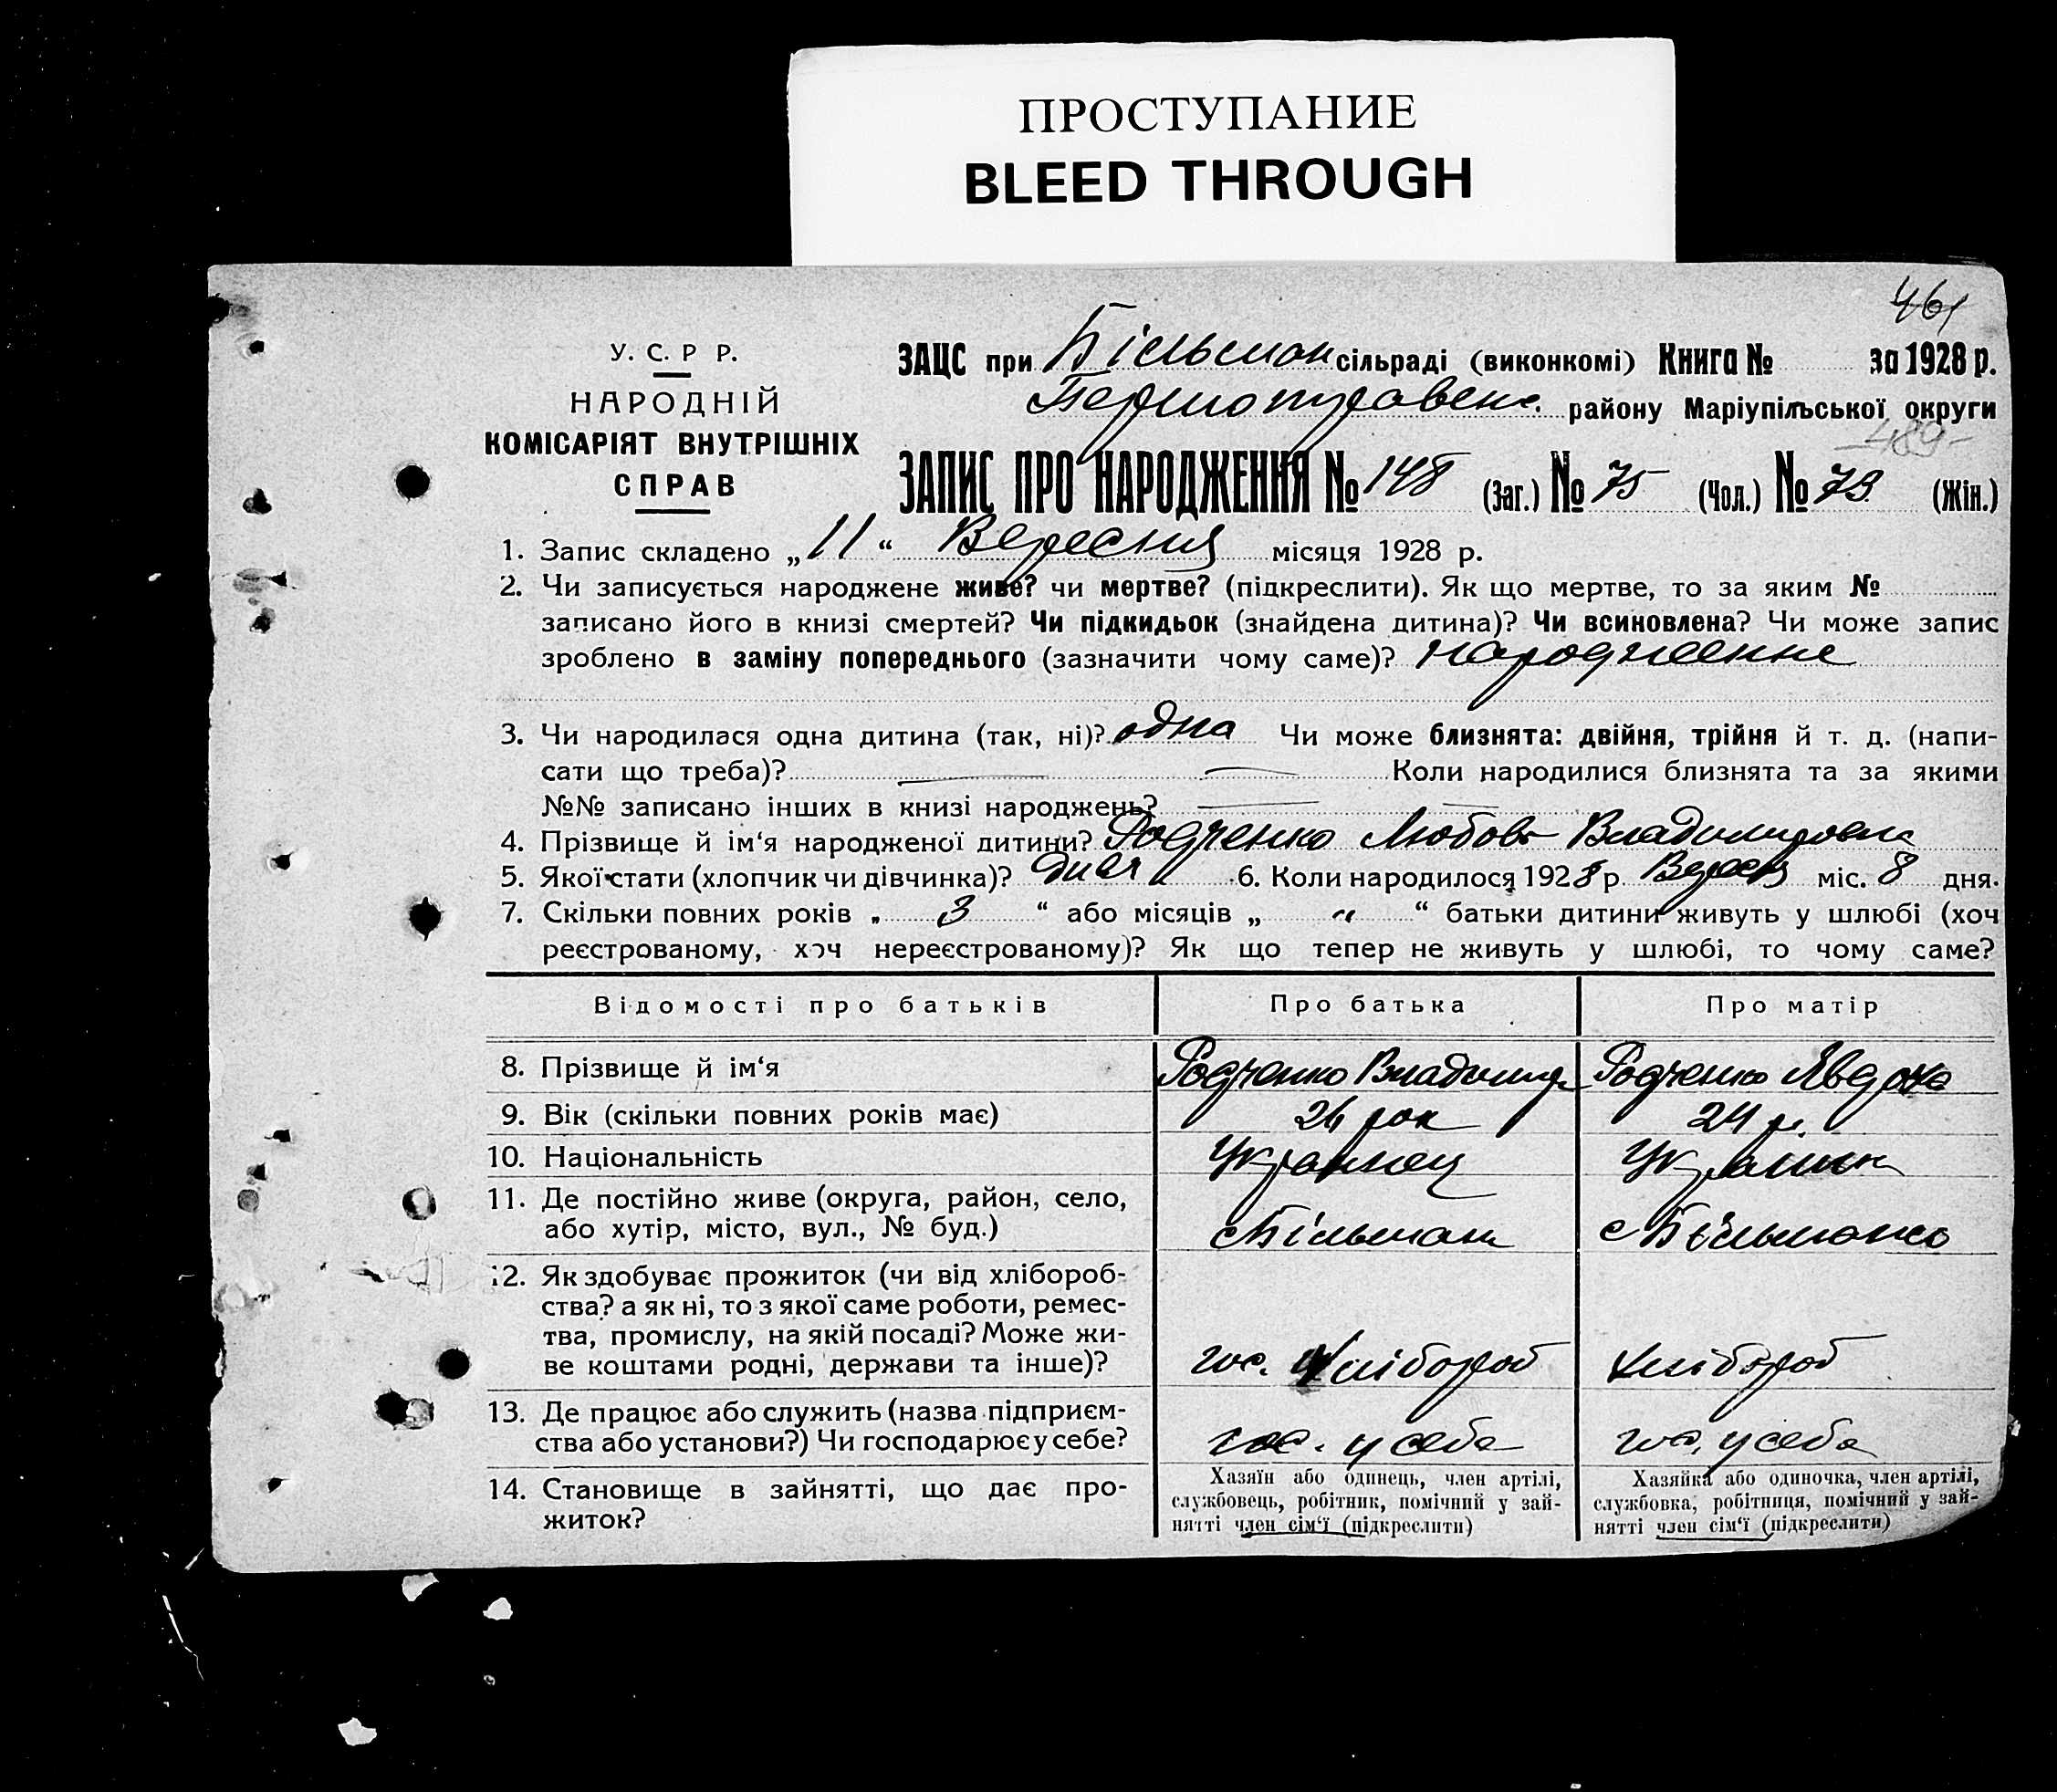 ПРОСТУПАНИЕ
BLEED THROUGH
461
У. С. Р Р.
НАРОДНІЙ
КОМІСАРІЯТ ВНУТРІШНІХ
СПРАВ
ЗАЦС при Більман сільраді (виконкомі) Книга № за 1928 р.
району Маріупільської округи
489
ЗАПИС ПРО НАРОДЖЕННЯ № 148 (Заг.) № 75 (Чол.) № 73 (Жін.)
1. Запис складено „ 11 “ Вересня місяця 1928 р.
2. Чи записується народжене живе? чи мертве? (підкреслити). Як що мертве, то за яким №
записано його в книзі смертей? Чи підкидьок (знайдена дитина)? Чи всиновлена? Чи може запис
зроблено в заміну попереднього (зазначити чому саме)? народження
3. Чи народилася одна дитина (так, ні)? одна Чи може близнята: двійня, трійня й т. д. (напи-
сати що треба)? Коли народилися близнята та за якими
№№ записано інших в книзі народжень?
4. Прізвище й ім‘я народженої дитини? Родченко Любовь Владимировна
5. Якої стати (хлопчик чи дівчинка)? 6. Коли народилося 1928 р. Верес міс. 8 дня.
7. Скільки повних років „ 3 “ або місяців „ “ батьки дитини живуть у шлюбі (хоч
реєстрованому, хоч нереєстрованому)? Як що тепер не живуть у шлюбі, то чому саме?
Відомості про батьків Про батька Про матір
8. Прізвище й ім‘я Родченко Владимир Родченко Явдоха
9. Вік (скільки повних років має) рок 24 р.
10. Національність Украінец Украінк
11. Де постійно живе (округа, район, село,
або хутір, місто, вул., № буд.) с Більман с Більманка
12. Як здобуває прожиток (чи від хлібороб-
ства? а як ні, то з якої саме роботи, ремес-
тва, промислу, на якій посаді? Може жи-
ве коштами родні, держави та інше)? гос. хлібороб хлібороб
13. Де працює або служить (назва підприєм-
ства або установи?) Чи господарює у себе? гос. у себа гос. у себа
14. Становище в зайнятті, що дає про-
житок?
Хазяїн або одинець, член артілі,
службовець, робітник, помічний у зай-
нятті член сім‘ї (підкреслити)
Хазяйка або одиночка, член артілі,
службовка, робітниця, помічний у зай-
нятті член сім‘ї (підкреслити)